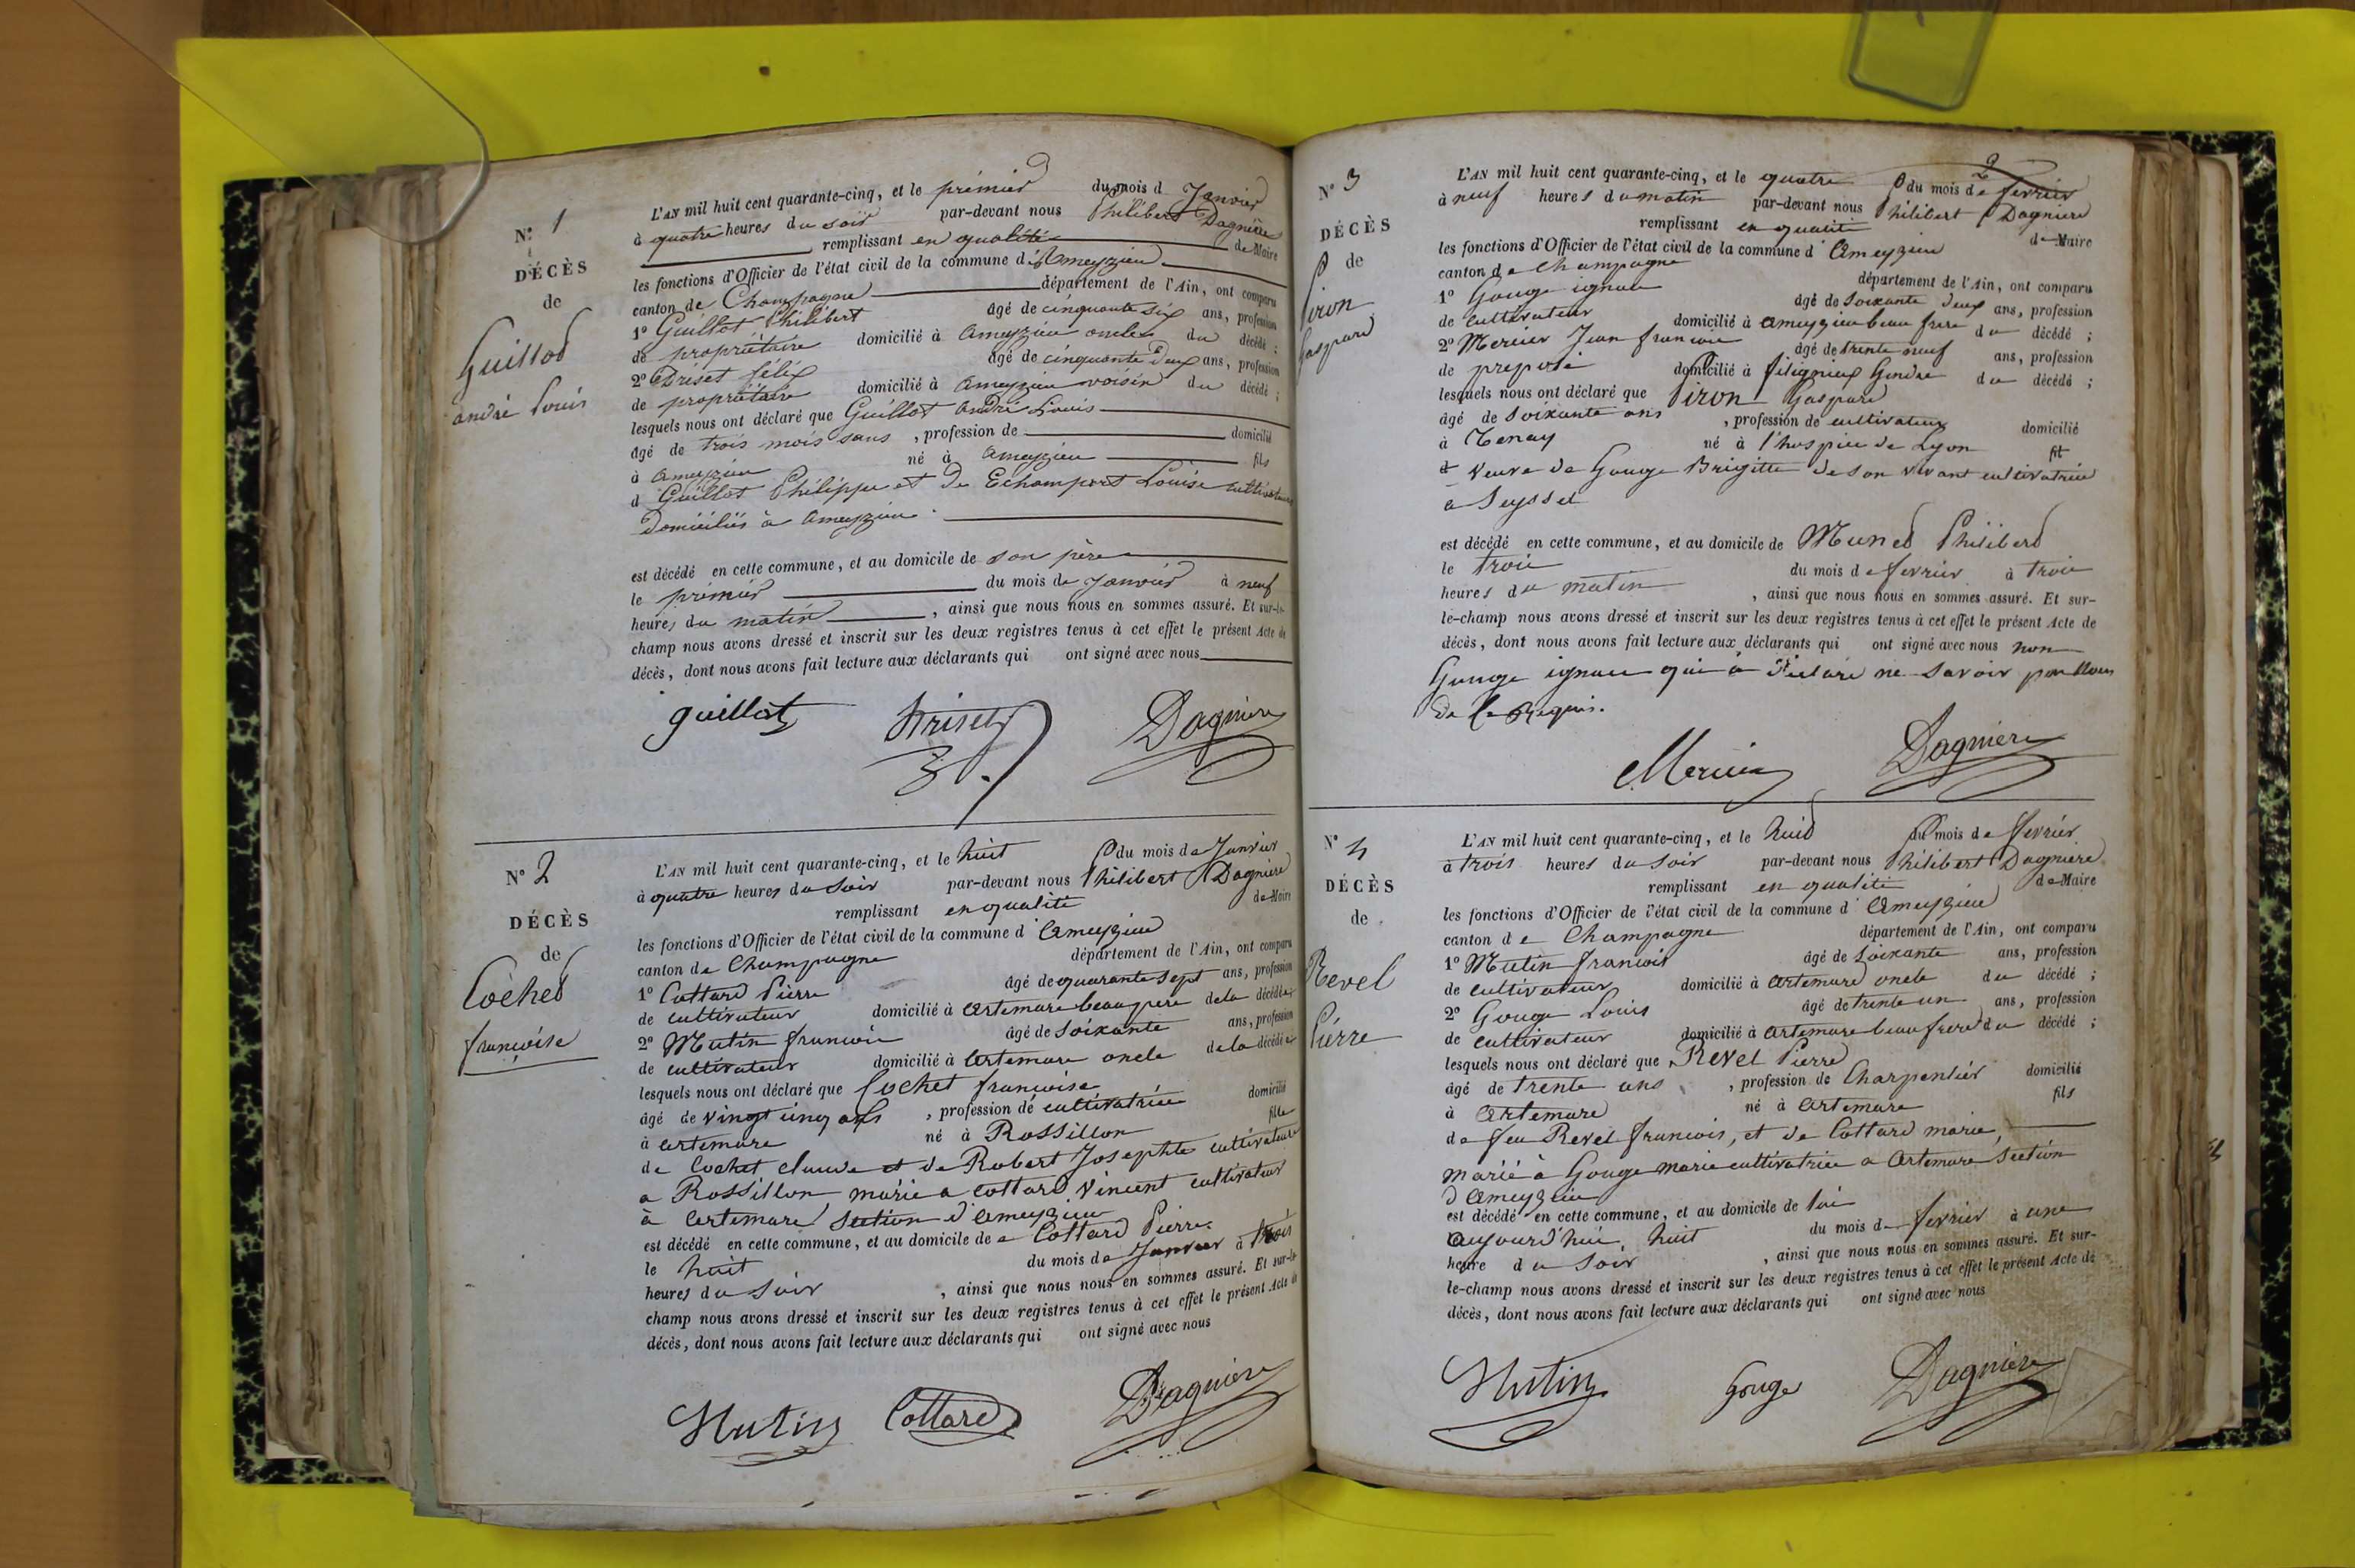 N° 1
DÉCÈS
de
Guillot
andré Louis
L'AN mil huit cent quarante-cinq, et le premier du mois d Janvier
à quatre heures du soir par-devant nous Philibert Dagnière
remplissant en qualité de Maire
les fonctions d'Officier de l'état civil de la commune d'Ameyzieu
canton de Champagne département de l'Ain, ont comparu
1° Guillot Philibert âgé de cinquante six ans, profession
de propriétaire domicilié à Ameyzieu oncle du décédé ;
2° Briset félix âgé de cinquante Deux ans, profession
de propriétaire domicilié à Ameyzieu voisin du décédé ;
lesquels nous ont déclaré que Guillot André Louis
âgé de trois mois sans , profession de domicilié
à Ameyzieu né à Ameyzieu fils
d Guillot Philippe et De Echampart Louise cultivateurs
Domiciliés à Ameyzieu.
est décédé en cette commune, et au domicile de son père
le premier du mois de Janvier à neuf
heures du matin , ainsi que nous nous en sommes assuré. Et sur-le-
champ nous avons dressé et inscrit sur les deux registres tenus à cet effet le présent Acte de
décès, dont nous avons fait lecture aux déclarants qui ont signé avec nous
guillot Briset Dagnière
N° 2
DÉCÈS
de
Cochet
françoise
L'AN mil huit cent quarante-cinq, et le huit du mois de Janvier
à quatre heures du soir par-devant nous Philibert Dagnière
remplissant en qualité de Maire
les fonctions d'Officier de l'état civil de la commune d Ameyzieu
canton de Champagne département de l'Ain, ont comparu
1° Cottard Pierre âgé de quarante sept ans, profession
de cultivateur domicilié à Artemare beau pere de la décédée
2° Mutin francois âgé de soixante ans, profession
de cultivateur domicilié à Artemare oncle de la décédée
lesquels nous ont déclaré que Cochet francoise
âgé de vingt cinq ans , profession de cultivatrice domicilié
à Artemare né à Rossillon fille
de Cochet claude et de Robert Josephte cultivateurs
a Rossillon mariée a Cottard Vincent cultivateur
à Artemare Section d'Ameyzieu
est décédé en cette commune, et au domicile de Cottard Pierre
le huit du mois de Janvier à trois
heures du soir , ainsi que nous nous en sommes assuré. Et sur-le-
champ nous avons dressé et inscrit sur les deux registres tenus à cet effet le présent Acte de
décès, dont nous avons fait lecture aux déclarants qui ont signé avec nous
Mutin Cottard Dagnière
2
N° 3
DÉCÈS
de
Piron
Gaspard
L'AN mil huit cent quarante-cinq, et le quatre du mois de fevrier
à neuf heures du matin par-devant nous Philibert Dagniere
remplissant en qualité de Maire
les fonctions d'Officier de l'état civil de la commune d' Ameyzieu
canton de Champagne département de l'Ain, ont comparu
1° Gouge ignace âgé de soixante deux ans, profession
de cultivateur domicilié à Ameyzieu beau frere du décédé ;
2° Mercier Jean francois âgé de trente neuf ans, profession
de preposé domicilié à filignieux Gendre du décédé ;
lesquels nous ont déclaré que Piron Gaspard
âgé de soixante ans , profession de cultivateur domicilié
à Tenay né à l'hospice de Lyon fil
d Veuve de Gouge Brigitte de son vivant cultivatrice
a Seyssel
est décédé en cette commune, et au domicile de Munet Philibert
le trois du mois de fevrier à trois
heures du matin , ainsi que nous nous en sommes assuré. Et sur-
le-champ nous avons dressé et inscrit sur les deux registres tenus à cet effet le présent Acte de
décès, dont nous avons fait lecture aux déclarants qui ont signé avec nous non
Gouge ignace qui à Déclaré ne savoir
de ce Requis.
Mercier Dagnière
N° 4
DÉCÈS
de
Revel
Pierre
L'AN mil huit cent quarante-cinq, et le huit du mois de fevrier
à trois heures du soir par-devant nous Philibert Dagniere
remplissant en qualité de Maire
les fonctions d'Officier de l'état civil de la commune d' Ameyzieu
canton de Champagne département de l'Ain, ont comparu
1° Mutin francois âgé de soixante ans, profession
de cultivateur domicilié à Artemare oncle du décédé ;
2° Gouge Louis âgé de trente un ans, profession
de cultivateur domicilié à Artemare beau frere du décédé ;
lesquels nous ont déclaré que Revel Pierre
âgé de trente ans , profession de Charpentier domicilié
à Artemare né à Artemare fils
de feu Revel francois, et de Cottard marie,
marié à Gouge marie cultivatrice a Artemare Section
d'Ameyzieu
est décédé en cette commune, et au domicile de lui
aujourd'hui huit du mois de fevrier à une
heure du soir , ainsi que nous nous en sommes assuré. Et sur-
le-champ nous avons dressé et inscrit sur les deux registres tenus à cet effet le présent Acte de
décès, dont nous avons fait lecture aux déclarants qui ont signé avec nous
Mutin Gouge Dagnière